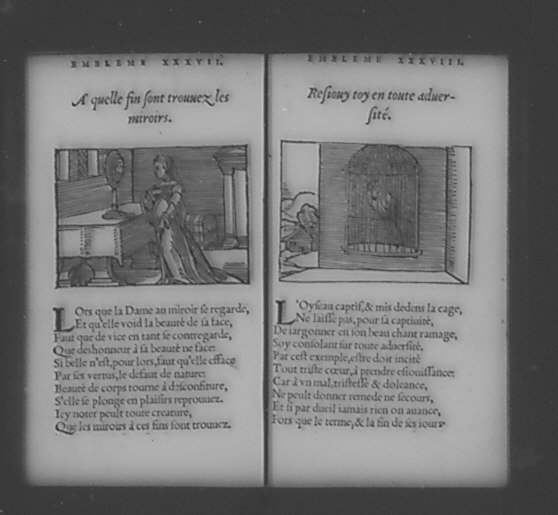 EMBLEME XXXVII.
A' quelle fin sont trouuez les
miroirs.
LOrs que la Dame au miroir se regarde,
Et qu'elle void la beauté de sa face,
Faut que de vice en tant se contregarde,
Que deshonneur à sa beauté ne face:
Si belle n'est, pour lors, faut qu'elle efface
Par ses vertus, le defaut de nature:
Beauté de corps tourne à desconfiture,
S'elle se plonge en plaisirs reprouuez.
Icy noter peult toute creature,
Que les miroirs à ces fins sont trouuez.
EMBLEME XXXVIII.
Resiouy toy en toute aduer-
sité.
L'Oyseau captif, & mis dedens la cage,
Ne laisse pas, pour sa captiuité,
De iargonner en son beau chant ramage,
Soy consolant sur toute aduersité.
Par cest exemple, estre doit incité
Tout triste cœur, à prendre esiouissance:
Car à vn mal, tristesse & doleance,
Ne peult donner remede ne secours,
Et si par dueil iamais rien on auance,
Fors que le terme, & la fin de ses iours